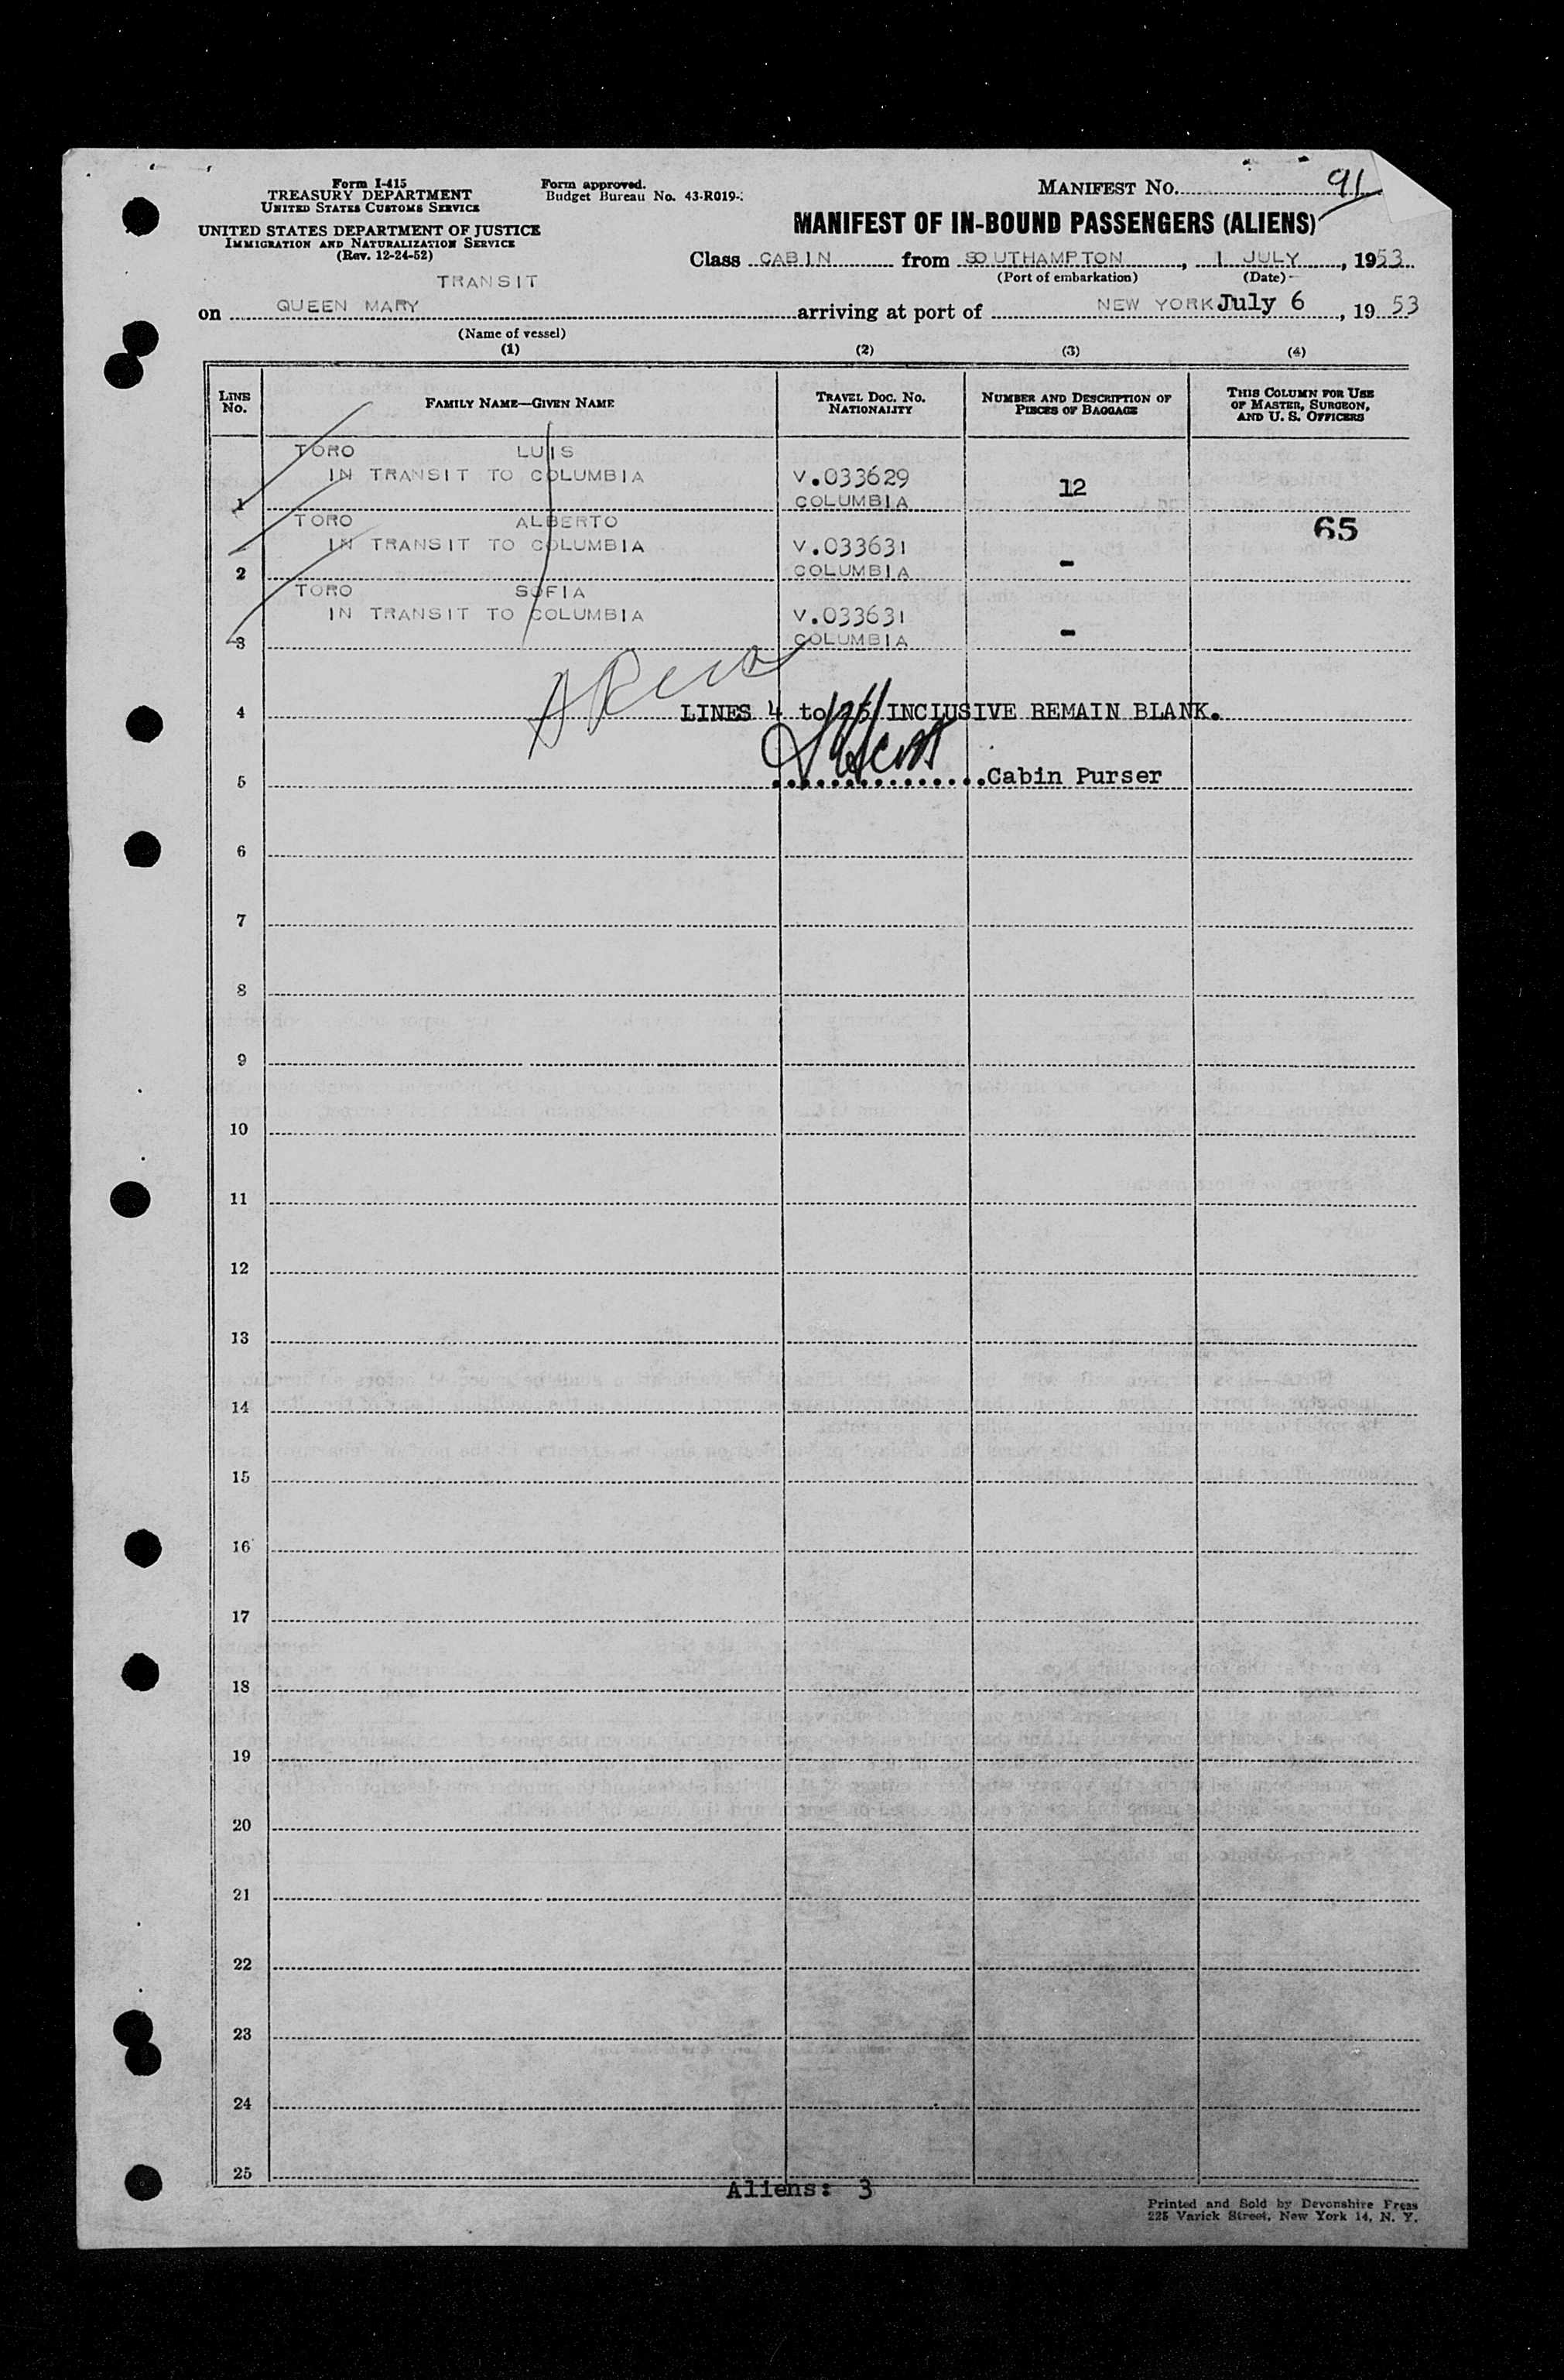 Form I-415
TREASURY DEPARTMENT
UNITED STATES CUSTOMS SERVICE
UNITED STATES DEPARTMENT OF JUSTICE
IMMIGRATION AND NATURALIZATION SERVICE
(Rev. 12-24-52)
Form approved.
Budget Bureau No. 43-R019-
MANIFEST NO. 91
MANIFEST OF IN-BOUND PASSENGERS (ALIENS)
Class CABIN from SOUTHAMPTON, 1 JULY, 1953
(Port of embarkation) (Date)
TRANSIT
on QUEEN MARY arriving at port of NEW YORK July 6, 19 53
(Name of vessel)
(1) (2) (3) (4)
LINE No. FAMILY NAME—GIVEN NAME TRAVEL DOC. NO. NATIONALITY NUMBER AND DESCRIPTION OF PIECES OF BAGGAGE THIS COLUMN FOR USE OF MASTER, SURGEON, AND U. S. OFFICERS
TORO LUIS
IN TRANSIT TO COLUMBIA V.033629
1 COLUMBIA 12
TORO ALBERTO 65
IN TRANSIT TO COLUMBIA V.033631
2 COLUMBIA -
TORO SOFIA
IN TRANSIT TO COLUMBIA V.033631
3 COLUMBIA -
4 LINES 4 to 25 INCLUSIVE REMAIN BLANK.
5 Cabin Purser
6
7
8
9
10
11
12
13
14
15
16
17
18
19
20
21
22
23
24
25
Aliens: 3
Printed and Sold by Devonshire Press
225 Varick Street, New York 14, N. Y.